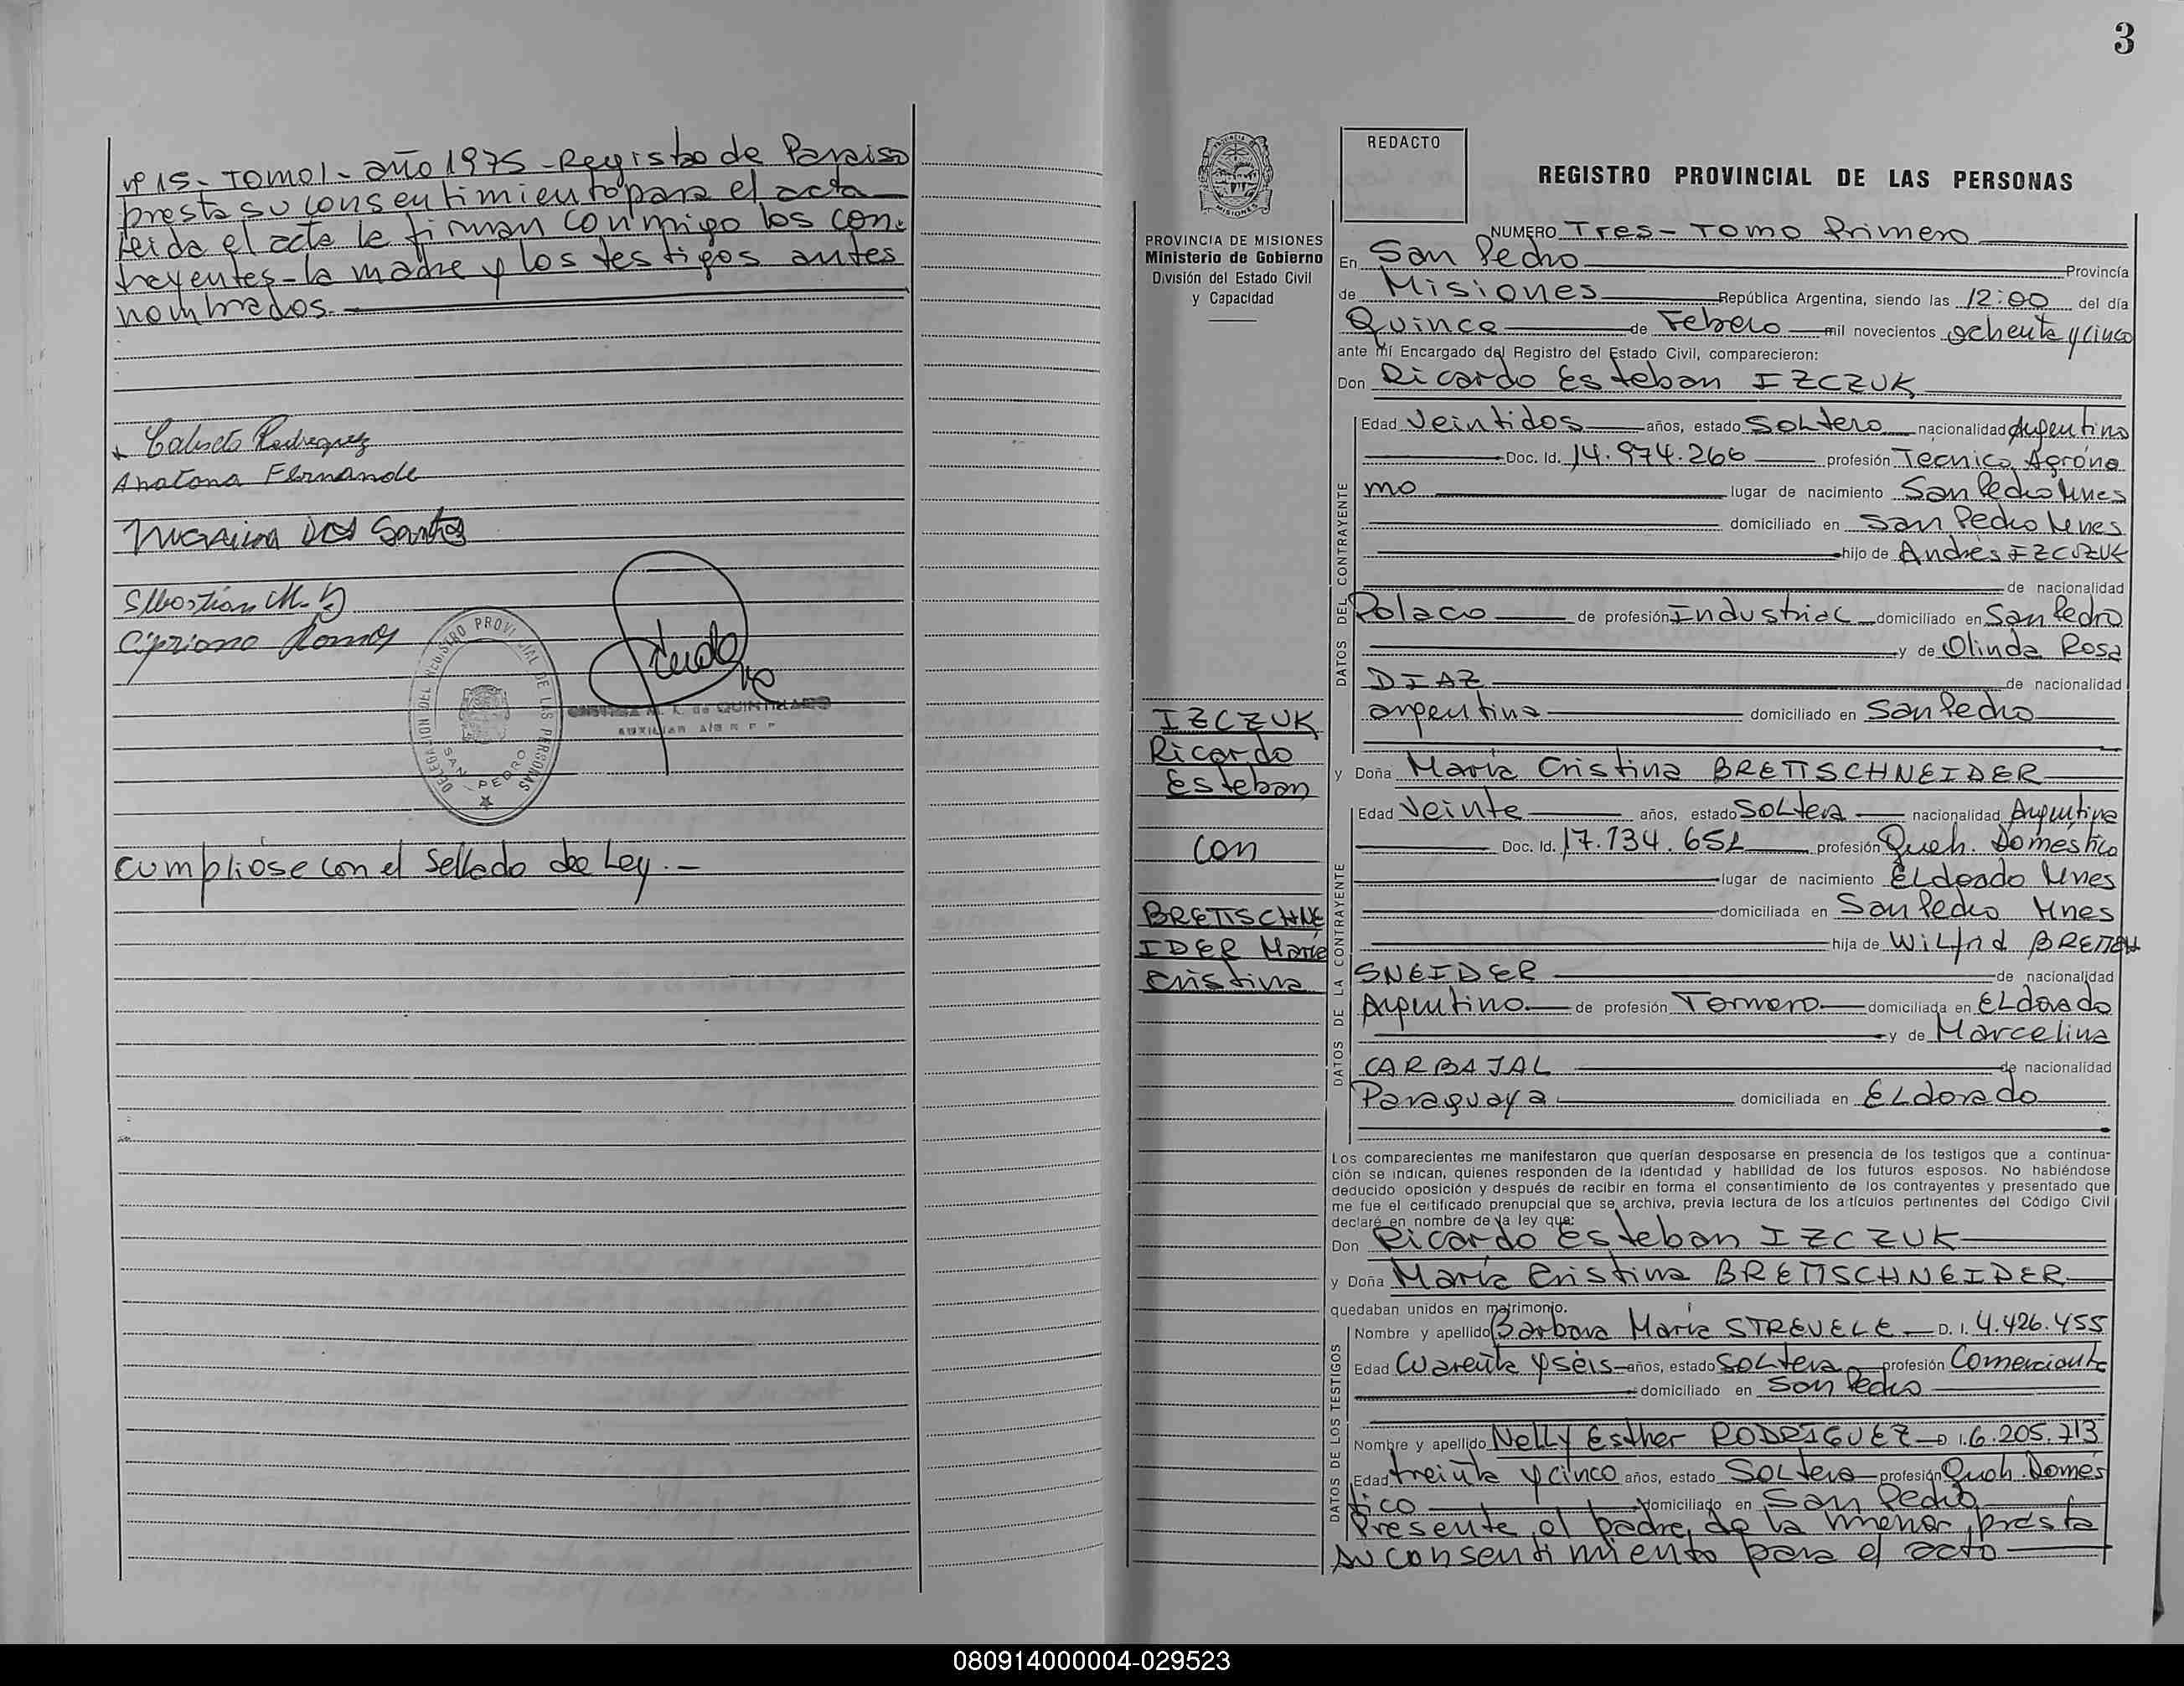 nº 15 - TOMO I - año 1975 - Registro de Paraiso
presta su consentimiento para el acta
Leida el acta la firman conmigo los con-
trayentes - la madre y los testigos antes
nombrados.
Calisto Rodriguez
Anatona Fernande
Dos Santos
Cipriano Ramos
DELEGACION DEL REGISTRO PROVINCIAL DE LAS PERSONAS
SAN PEDRO
de QUINTINIANO
AUXILIAR
Cumpliose con el sellado de Ley.-
3
PROVINCIA DE MISIONES
Ministerio de Gobierno
División del Estado Civil
y Capacidad
IZCZUK
Ricardo
Esteban
con
BRETTSCHNE
IDER María
Cristina
REDACTO
REGISTRO PROVINCIAL DE LAS PERSONAS
NUMERO Tres - TOMO Primero
En San Pedro Provincia
de Misiones República Argentina, siendo las 12:00 del día
Quince de Febrero mil novecientos ochenta y cinco
ante mí Encargado del Registro del Estado Civil, comparecieron:
Don Ricardo Esteban IZCZUK
DATOS DEL CONTRAYENTE
Edad Veintidos años, estado Soltero nacionalidad Argentino
Doc. Id. 14.974.266 profesión Tecnico Agróno
mo lugar de nacimiento San Pedro Mnes
domiciliado en San Pedro Mnes
hijo de Andrés IZCZUK
de nacionalidad
Polaco de profesión Industrial domiciliado en San Pedro
y de Olinda Rosa
DIAZ de nacionalidad
argentina domiciliado en San Pedro
y Doña María Cristina BRETTSCHNEIDER
DATOS DE LA CONTRAYENTE
Edad Veinte años, estado Soltera nacionalidad Argentina
Doc. Id. 17.134.651 profesión Queh. Doméstico
lugar de nacimiento ELdorado Mnes
domiciliada en San Pedro Mnes
hija de Wilfrid BRETTCH
SNEIDER de nacionalidad
Argentino de profesión Tornero domiciliada en ELdorado
y de Marcelina
CARBAJAL de nacionalidad
Paraguaya domiciliada en ELdorado
Los comparecientes me manifestaron que querían desposarse en presencia de los testigos que a continua-
ción se indican, quienes responden de la identidad y habilidad de los futuros esposos. No habiéndose
deducido oposición y después de recibir en forma el consentimiento de los contrayentes y presentado que
me fue el certificado prenupcial que se archiva, previa lectura de los artículos pertinentes del Código Civil
declaré en nombre de la ley que:
Don Ricardo Esteban IZCZUK
y Doña María Cristina BRETTSCHNEIDER
quedaban unidos en matrimonio.
DATOS DE LOS TESTIGOS
Nombre y apellido Bárbara María STREVELE D. I. 4.426.455
Edad Cuarenta y séis años, estado Soltera profesión Comerciante
domiciliado en San Pedro
Nombre y apellido Nelly Esther RODRIGUEZ D. I. 6.205.713
Edad treinta y cinco años, estado Soltera profesión Queh. Domes
tico domiciliado en San Pedro
Presente el padre de la menor, presta
su consentimiento para el acto
080914000004-029523